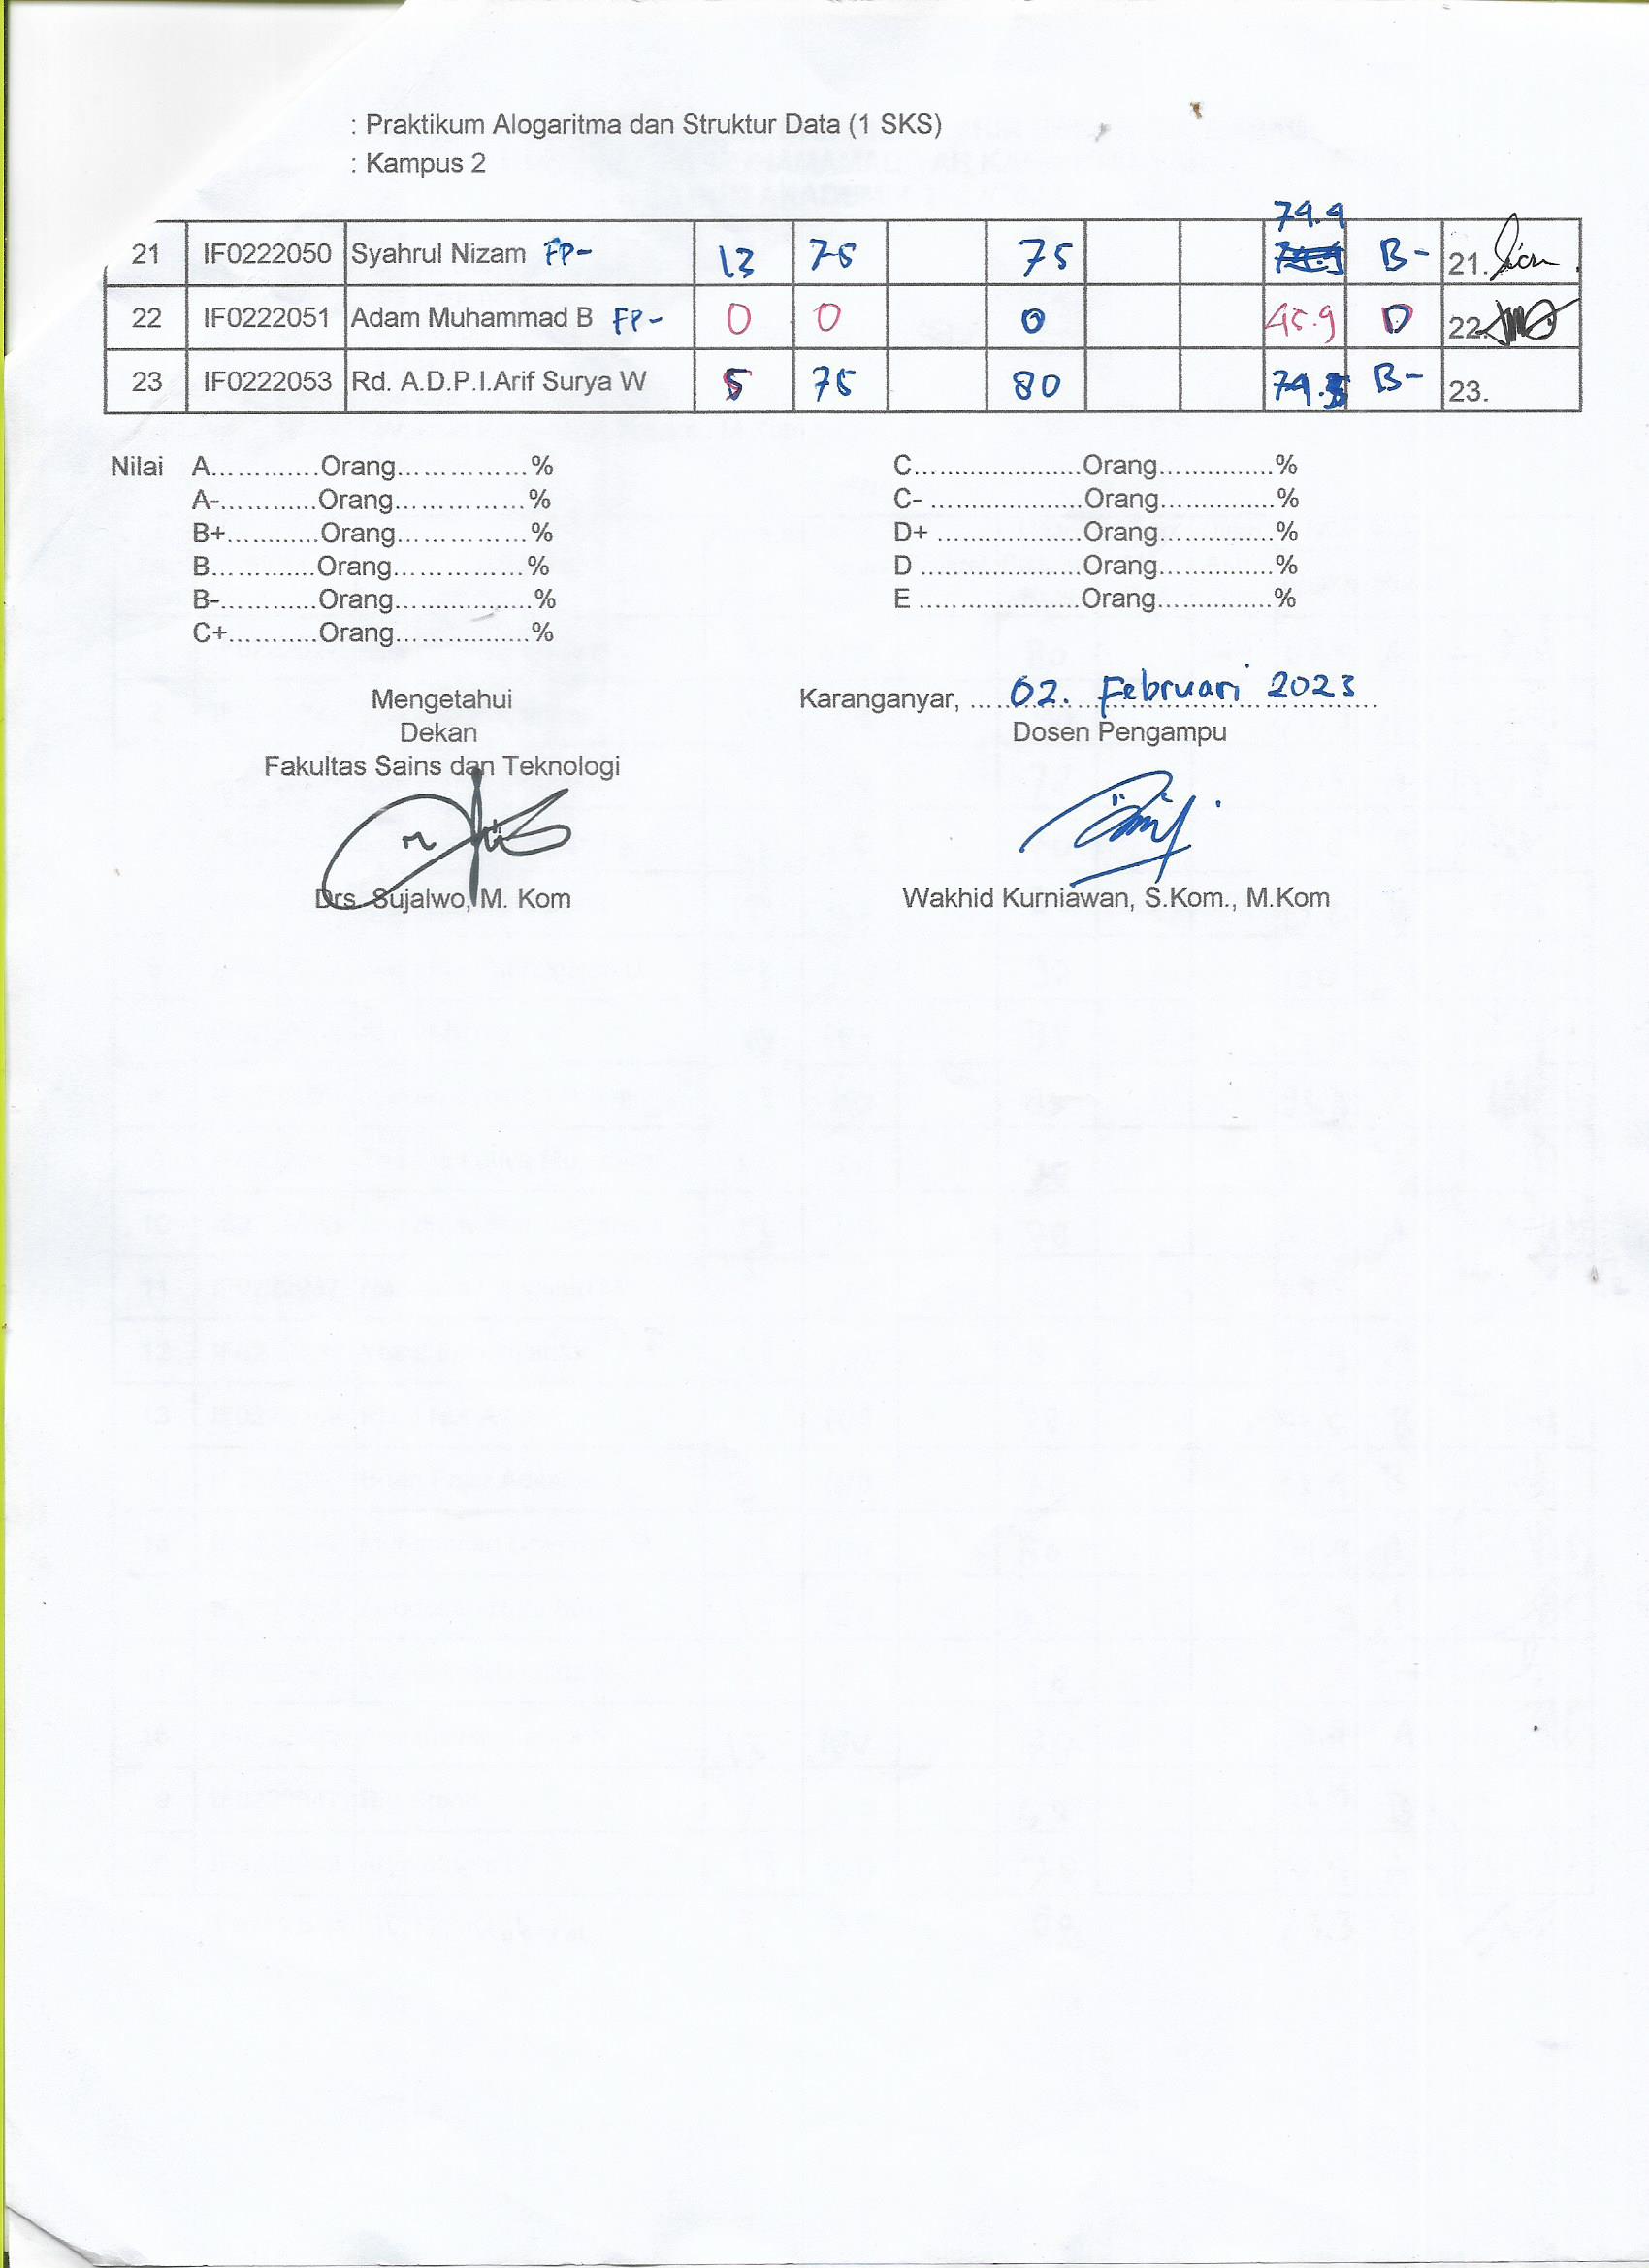 : Praktikum Alogaritma dan Struktur Data (1 SKS)
: Kampus 2
74.9
21 IF0222050 Syahrul Nizam FP- 13 75 75 B- 21.
22 IF0222051 Adam Muhammad B FP- 0 0 0 45.9 D 22.
23 IF0222053 Rd. A.D.P.I.Arif Surya W 5 75 80 B- 23.
Nilai A.............Orang................% C.....................Orang...............%
A-............Orang................% C- ...................Orang...............%
B+...........Orang................% D+ ..................Orang...............%
B.............Orang................% D ....................Orang...............%
B-............Orang.................% E ....................Orang...............%
C+...........Orang.................%
Mengetahui
Dekan
Fakultas Sains dan Teknologi
Drs. Sujalwo, M. Kom
Karanganyar, ... 02. Februari 2023
Dosen Pengampu
Wakhid Kurniawan, S.Kom., M.Kom